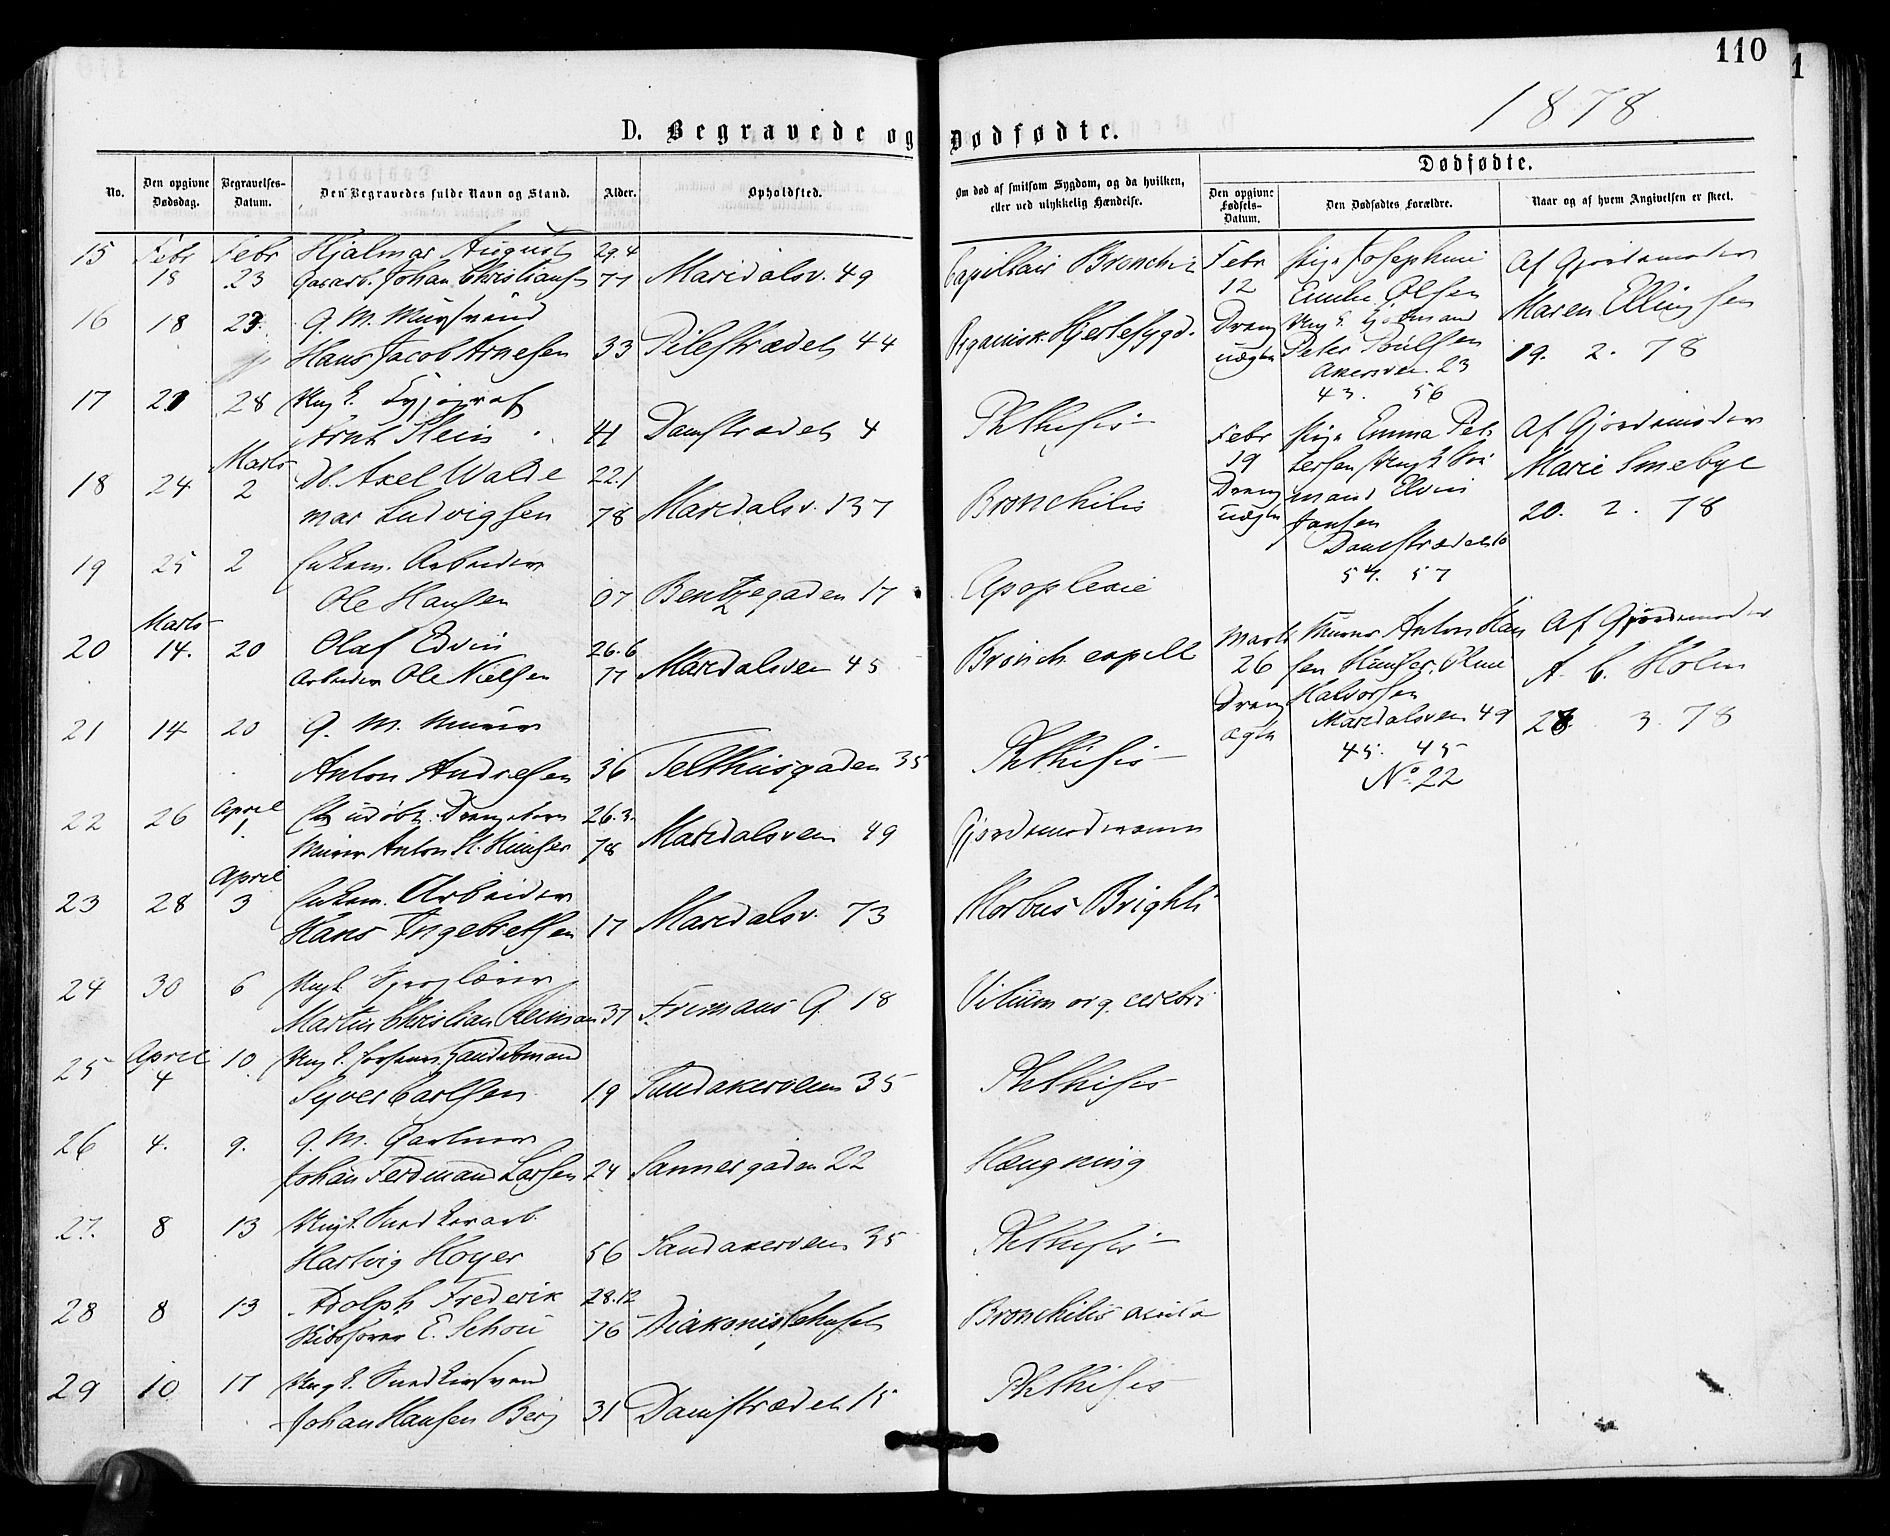 110
1878
D. Begravede og Dødfødte.
No.
Den opgivne Dødsdag.
Begravelses-Datum.
Den Begravedes fulde Navn og Stand.
Alder.
Opholdsted.
Om død af smitsom Sygdom, og da hvilken,
eller ved ulykkelig Hændelse.
Dødfødte.
Den opgivne Fødsels-Datum.
Den Dødfødtes Forældre.
Naar og af hvem Angivelsen er skeet.
15 Febr Febr Hjalmar August 29.4
18 23 Johan Christiansen 77 Maridalsv. 49 Capillair Bronchit
16 18 23. G. M.
Hans Jacob Arnesen 33 Pilestrædet 44 Organisk Hjertesygd.
17 21 28 Ung k.
Arnt Stein 41 Damstrædet 4 Phthisis
18 24 Marts 2 Db. Axel Walde 22.1
mar Ludvigsen 78 Maridalsv. 137 Bronchitis
19 25 2 Enkem. Arbeider
Ole Hansen 07 Bentzegaden 17 Apoplexie
Marts
20 14. 20 Olaf Edvin 26.6
Arbeider Ole Nielsen 77 Maridalsveien 45 Bronch. capill
21 14 20 G. M. Murer
Anton Andresen 36 Telthusgaden 35 Phthisis
22 26 April 1 udøbt Drengebarn 26.3.
Murer Anton H. 78 Maridalsveien 49
23 28 April 3 Enkem. Arbeider
Hans Ingebretsen 17 Maridalsv. 73 Morbus Brighti
24 30 6 Ungk.
Martin Christian Reiman 37 Fremans G. 18 Vitium org. cerebri
25 April 4 10 Ung k.
Syver Carlsen 19 Sandakerveien 35 Phthisis
26 4. 9. G. M. Gartner
Johan Ferdinand Larsen 24 Sannergaden 22 Hængning
27. 8 13 Ungk. Snedkerarb.
Hartvig Hoyer 56 Sandakerveien 35 Phthisis
28 8 13 Adolph Frederik 28.12
E. Schou 76 Diakonissehuset Bronchitis acuta
29 10 17 Ung k. Snedkersvend
Johan Hansen Berg 31 Damstrædet 15 Phthisis
Febr
12
Dreng
uægte
Pige Josephine
Olsen
Ung k.
Peter
Akersvei. 23
43. 56
Af Gjordemoder
Maren Ellingsen
19. 2. 78
Febr
19
Dreng
uægte
Pige Emma Pet
tersen Ungk.
mand Elvin
Jansen
Damstrædet 10
54. 57
Af Gjordemoder
Marie Smebye
20. 2. 78
Marts
26
Dreng
ægte
Murer Anton Han
sen
Halvorsen
Maridalsveien 49
45. 45
No. 22
Af Gjordemoder
A. C. Holm
28. 3. 78